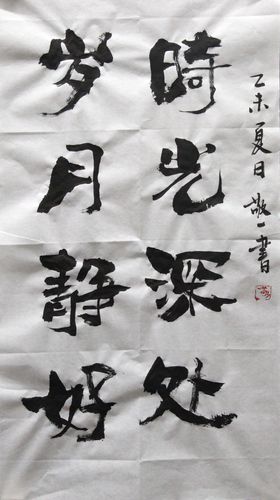 時光深处
岁月静好
乙未夏日敬一書